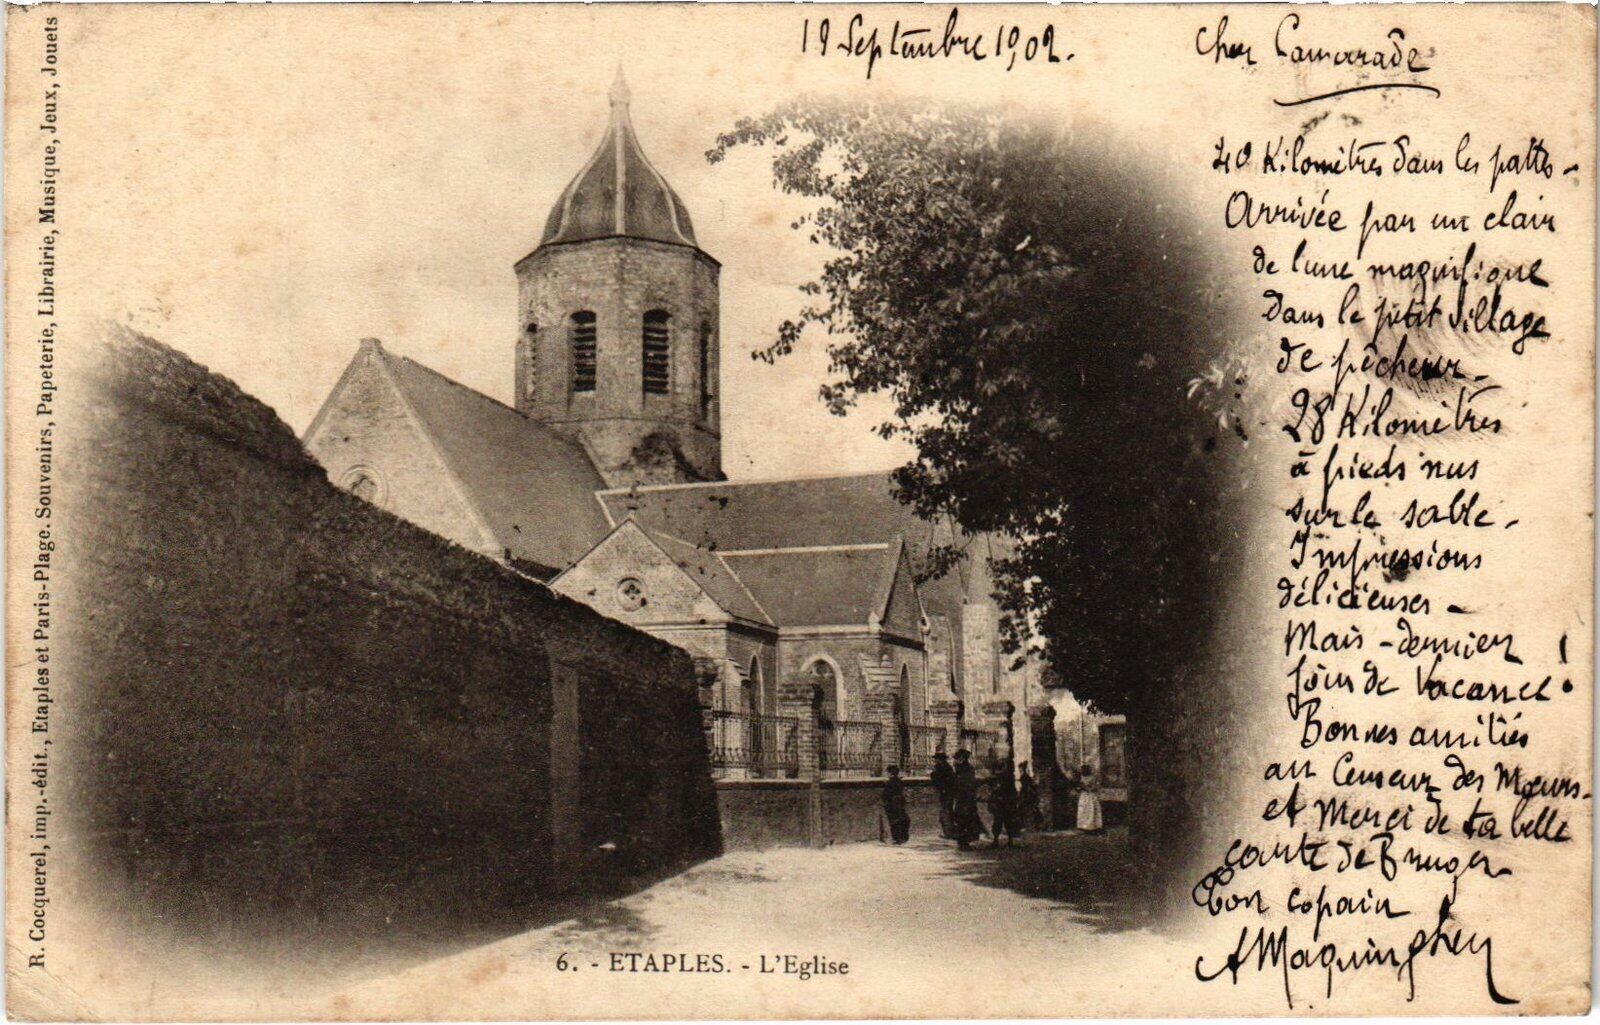 19 Septembre 1902.
Cher Camarade
40 Kilomètres dans les pattes -
Arrivée par un clair
de lune magnifique
dans le petit village
de pêcheur -
28 Kilomètres
à pieds nus
sur le sable -
Impressions
délicieuses -
Mais - dernier
jour de Vacance !
Bonnes amitiés
au Censeur des Mœurs -
et Merci de ta belle
carte de Bruges
Ton copain
A Maquinghen
6. - ETAPLES. - L'Eglise
R. Cocquerel, imp.-édit., Etaples et Paris-Plage. Souvenirs, Papeterie, Librairie, Musique, Jeux, Jouets